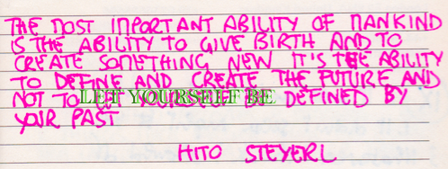 THE MOST IMPORTANT ABILITY OF MANKIND
IS THE ABILITY TO GIVE BIRTH AND TO
CREATE SOMETHING NEW IT'S THE ABILITY
TO DEFINE AND CREATE THE FUTURE AND
NOT TO LET YOURSELF BE DEFINED BY
LET YOURSELF BE
YOUR PAST
HITO STEYERL